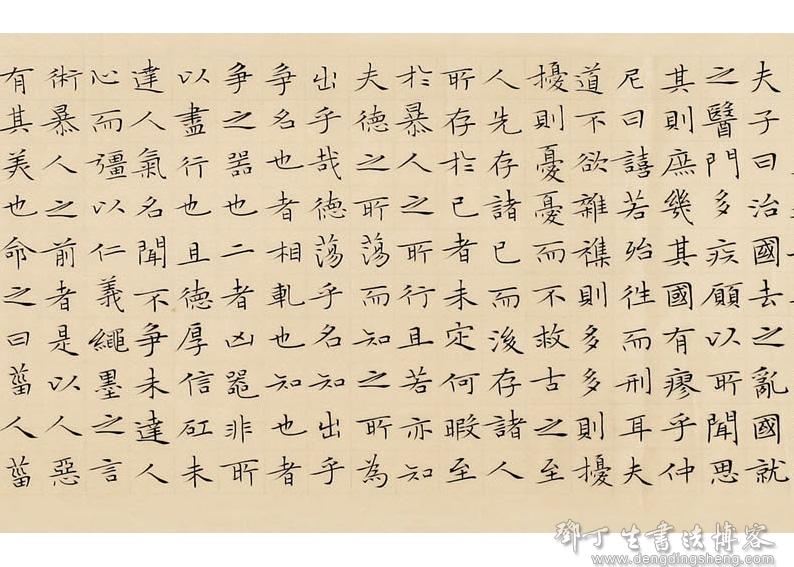 夫子曰治國去之亂國就
之醫門多疾願以所聞思
其則庶幾其國有瘳乎仲
尼曰譆若殆徃而刑耳夫
道不欲雜襍則多多則擾
擾則憂憂而不救古之至
人先存諸己而後存諸人
所存於己者未定何暇至
於暴人之所行且若亦知
夫德之所蕩而知之所為
出乎哉德蕩乎名知出乎
争名也者相軋也知也者
争之噐也二者凶噐非所
以盡行也且德厚信矼未
達人氣名聞不争未達人
心而彊以仁義繩墨之言
術暴人之前者是以人惡
有其美也命之曰菑人菑
鄧丁生書法博客
www.dengdingsheng.com